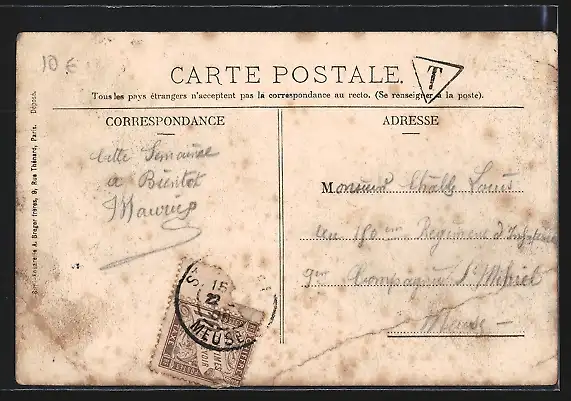 10 €
CARTE POSTALE.
T
Tous les pays étrangers n'acceptent pas la correspondance au recto. (Se renseigner à la poste).
CORRESPONDANCE
ADRESSE
Cette Semaine
a Bientot
Maurice
Monsieur Louis
au Régiment d'Infanterie
9me Compagnie St Mihiel
Meuse
15
22
MEUSE
A. Breger frères, 9, Rue Thénard, Paris. Déposé.